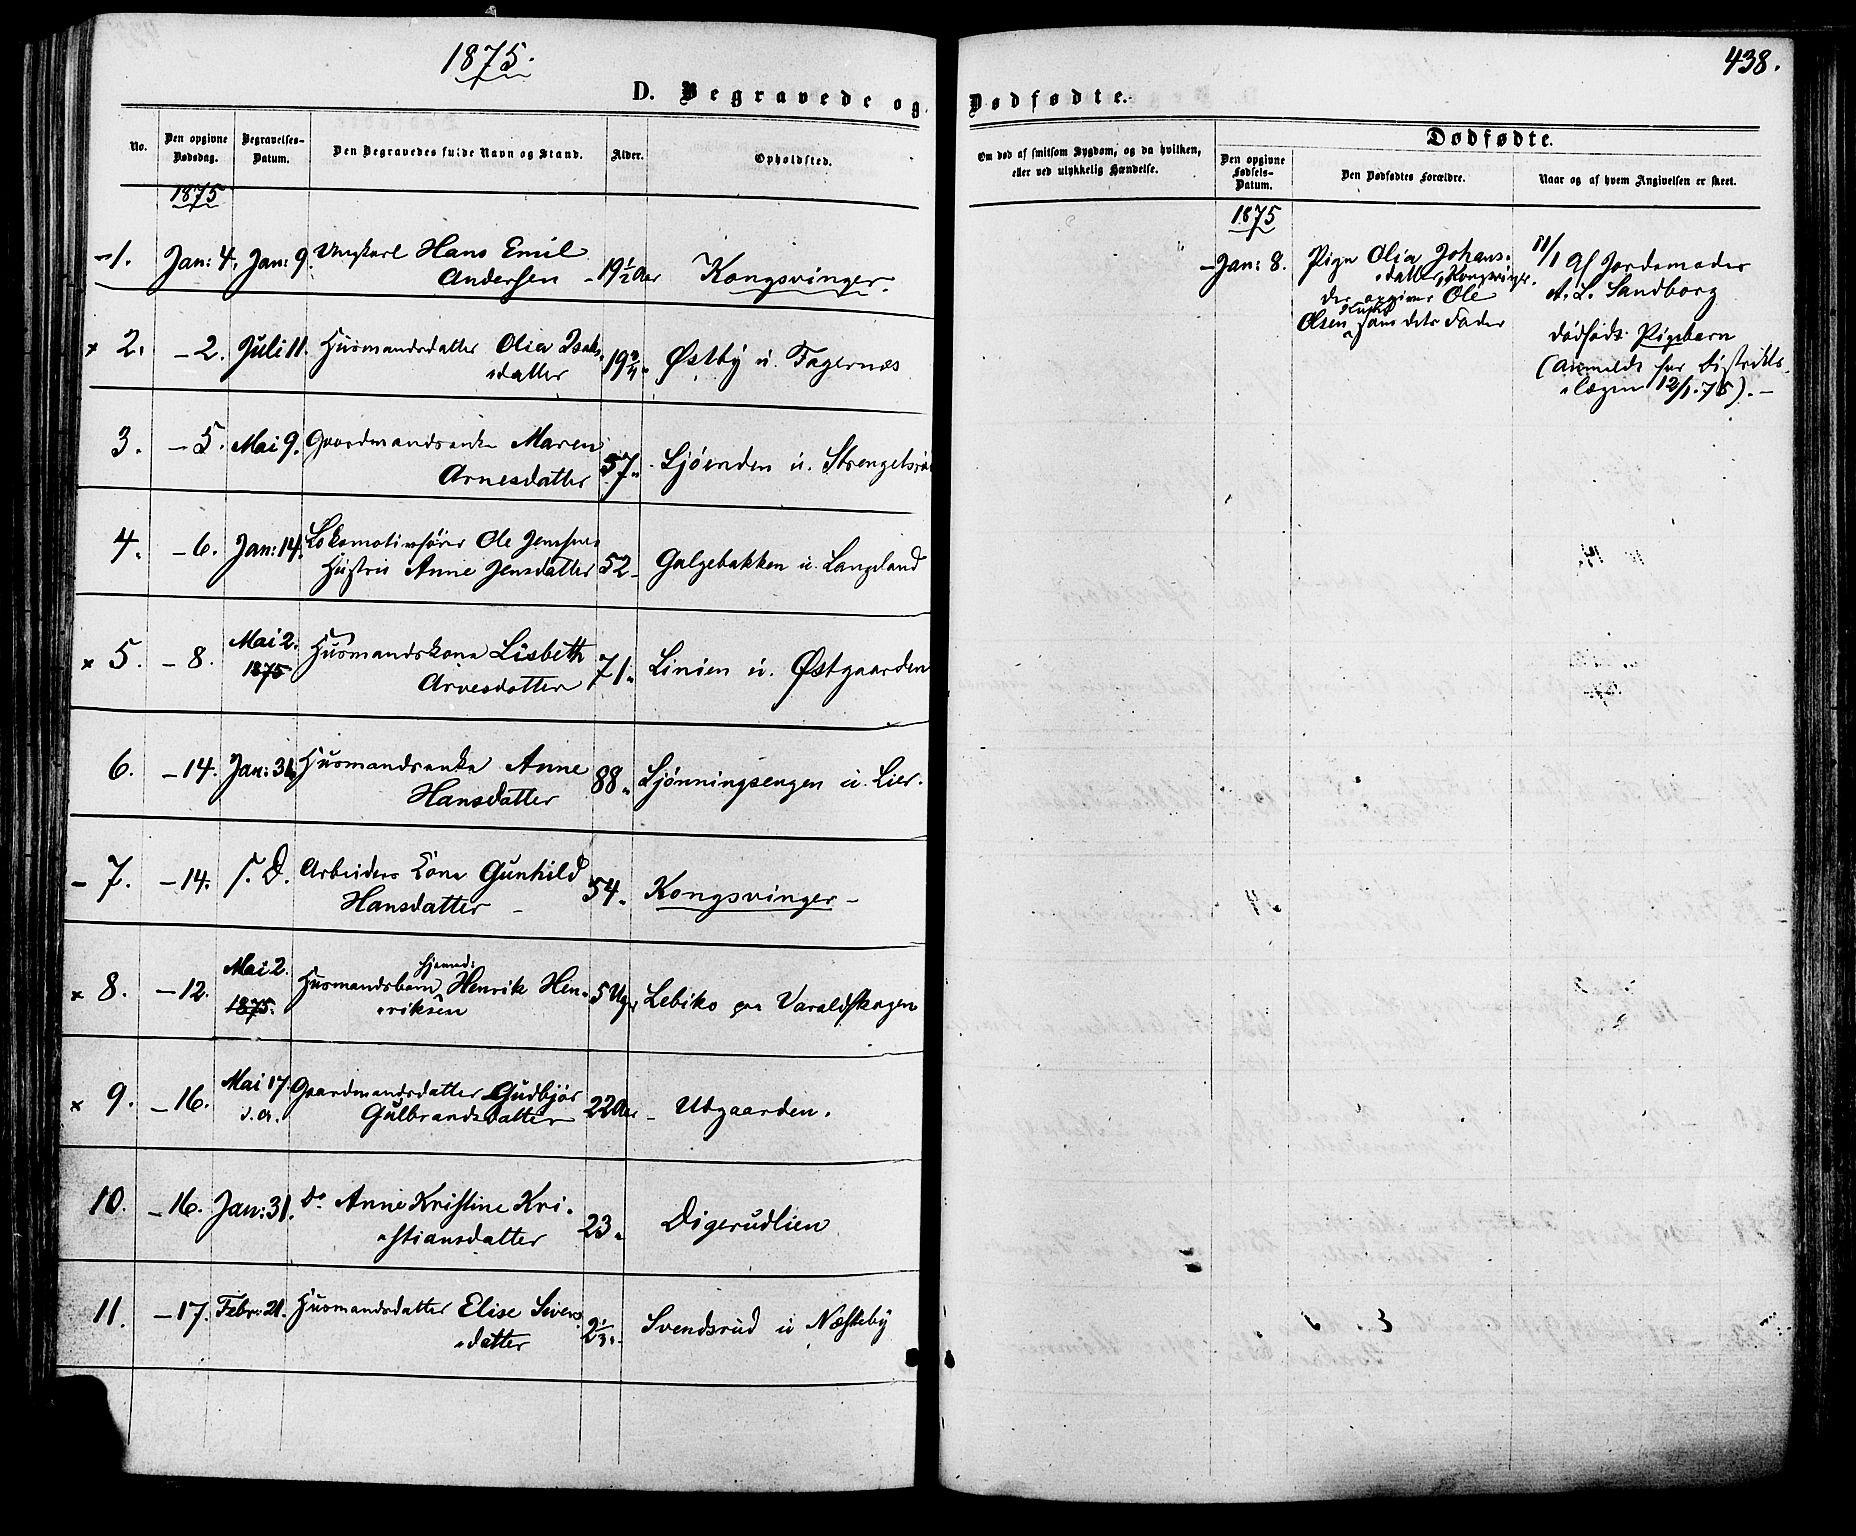 1875.
438.
D. Begravede og
Dødfødte.
No.
Den opgivne Dødsdag.
Begravelses-Datum.
Den Begravedes fulde Navn og Stand.
Alder.
Opholdsted.
Om død af smitsom Sygdom, og da hvilken,
eller ved ulykkelig Hændelse.
Dødfødte.
Den opgivne Fødsels-Datum.
Den Dødfødtes Forældre.
Naar og af hvem Angivelsen er skeet.
1875
-1. Jan: 4. Jan: 9. Ungkarl Hans Emil
Andersen - 19½ Aar Kongsvinger.
x 2. - 2. Juli 11. Husmandsdatter Olia Isaks
datter 19¾ " Østby u. Fagernæs
3. - 5. Mai 9. Gaardmandsenke Maren
Arnesdatter 57 " Sjøenden u.
4. - 6. Jan: 14. Lokomotivfører Ole Jensens
Hustru Anne Jensdatter 52 - Galgebakken u. Langeland
x 5. - 8. Mai 2. 1875 Husmandskone Lisbeth
Arnesdatter 71 " Linien u. Østgaarden
6. - 14. Jan: 31. Husmandsenke Anne
Hansdatter 88 " Ljønningsengen u. Lier.
- 7. - 14. S. D. Arbeiders Kone Gunhild
Hansdatter - 54 " Kongsvinger -
x 8. - 12. Mai 2. 1875. Husmandsbarn hjemd: Henrik Hen-
riksen 5 Uger Lebiko paa Varaldskogen
x 9. - 16. Mai 17. s. A. Gaardmandsdatter Gudbjør
Gulbrandsdatter 22 Aar - Utgaarden.
10. - 16. Jan: 31. Do Anne Kristine Kri-
stiansdatter 23 " Digerudlien
11. - 17. Febr: 21. Husmandsdatter Elise Sivers
datter 2⅓ " Svendsrud u Næsteby
1875
- Jan: 8. Pige Olia Johans-
datter, Kongsvinger.
der opgiver Ole
Olsen som dets Fader
11/1 Af Jordemoder
A. L. Sandborg
dødfødt Pigebarn
(anmeldt for Distrikts-
lægen 12/1. 75). -